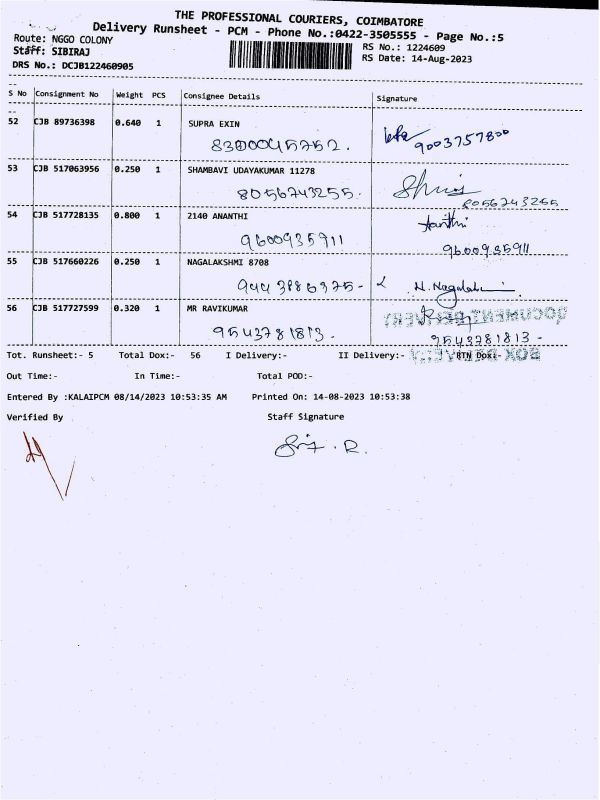 THE PROFESSIONAL COURIERS, COIMBATORE
Delivery Runsheet - PCM - Phone No.:0422-3505555 - Page No.:5
Route: NGGO COLONY
RS No.: 1224609
Staff: SIBIRAJ
RS Date: 14-Aug-2023
DRS No.: DCJB122460905
S No Consignment No Weight PCS Consignee Details Signature
52 CJB 89736398 0.640 1 SUPRA EXIN
9003757800
53 CJB 517063956 0.250 1 SHAMBAVI UDAYAKUMAR 11278
8056743255. 8056743255
54 CJB 517728135 0.800 1 2140 ANANTHI
Ananthi
9600935911 9600935911
55 CJB 517660226 0.250 1 NAGALAKSHMI 8708
N. Nagalakshmi
56 CJB 517727599 0.320 1 MR RAVIKUMAR
DOCUMENT DELIVERY
9543781813. 9543781813 -
Tot. Runsheet:- 5 Total Dox:- 56 I Delivery:- II Delivery:- RTN Dox:-
BOX DELIVERY
Out Time:- In Time:- Total POD:-
Entered By :KALAIPCM 08/14/2023 10:53:35 AM Printed On: 14-08-2023 10:53:38
Verified By Staff Signature